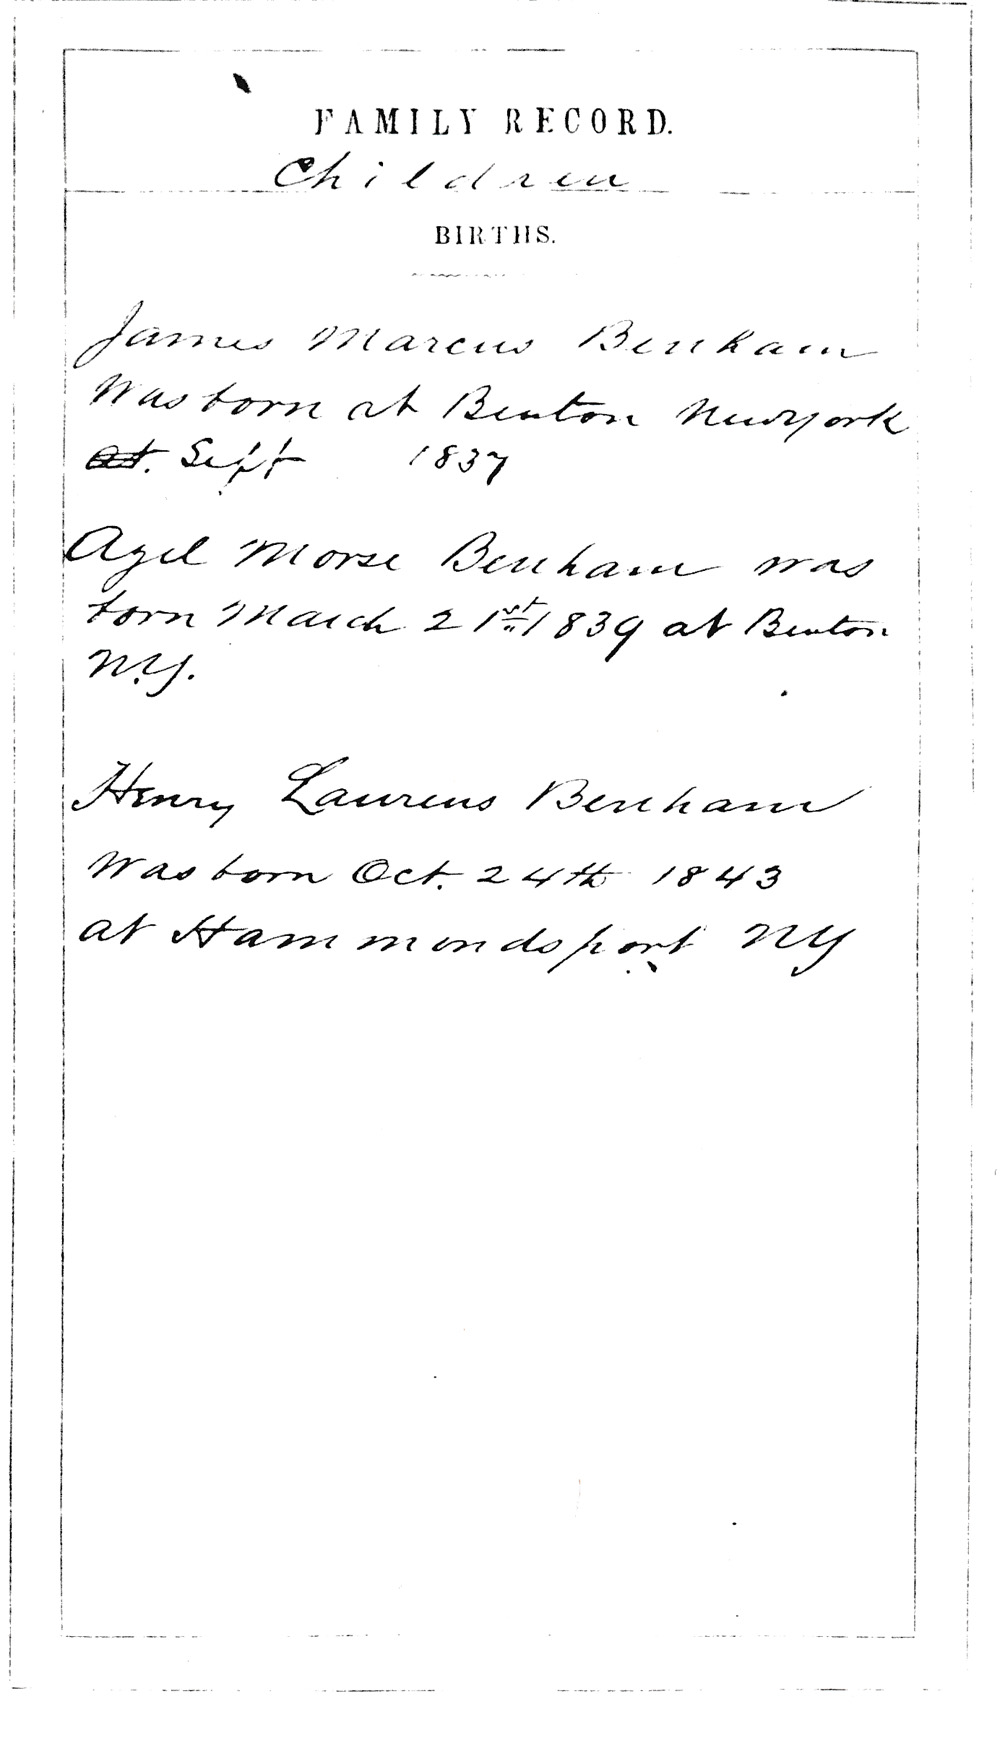 FAMILY RECORD.
Children
BIRTHS.
James Marcus Benham
Was born at Benton New York
at. Sept 1837
Azel Morse Benham was
born March 21st 1839 at Benton
N.Y.
Henry Laurens Benham
Was born Oct. 24th 1843
at Hammondsport NY